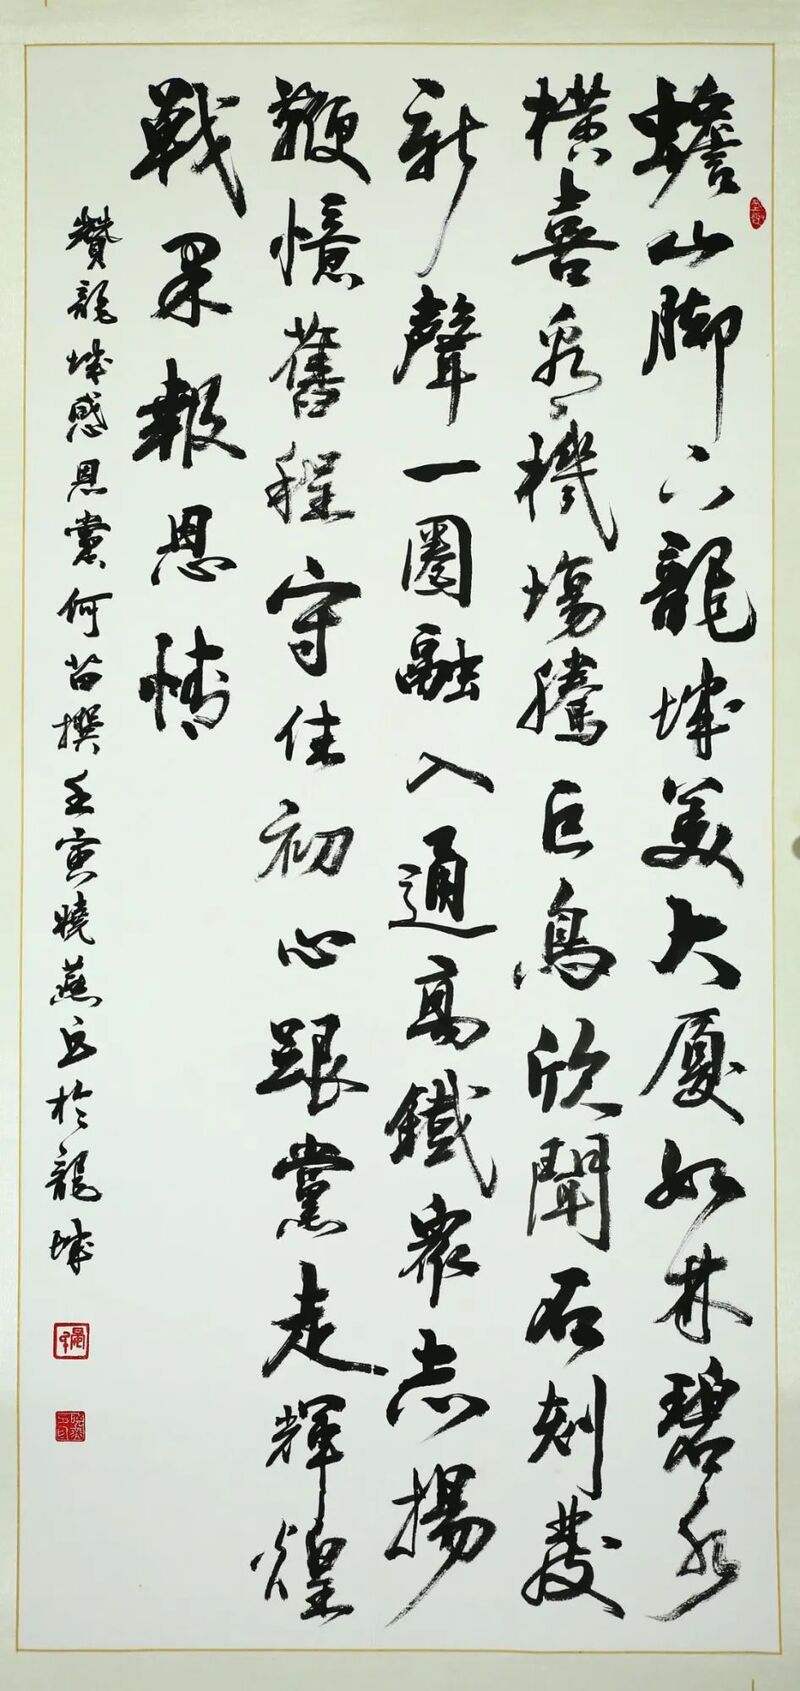 蟾山脚下龍城美大廈如林碧水
橫喜看機場騰巨鳥欣聞石刻發
新聲一圈融入通高鐵眾志揚
鞭憶舊程守住初心跟黨走輝煌
戰果報恩情
贊龍城感恩黨何苗撰壬寅曉燕書於龍城